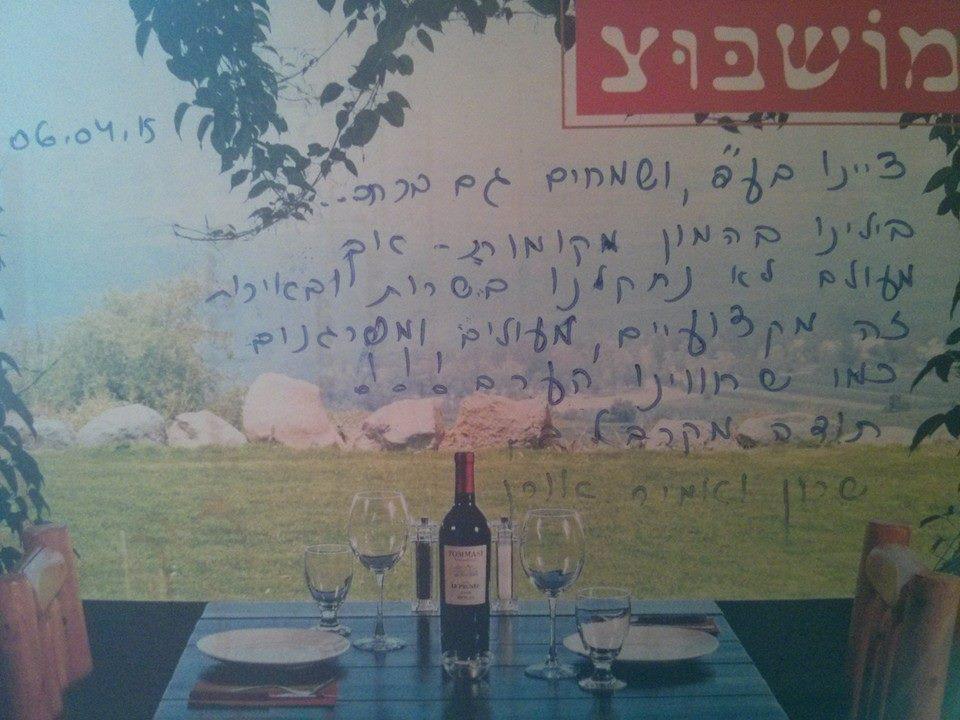 מוֹשבּוּצ
06.04.15
ציינו בע"פ, ושמחים גם בכתב...
בילינו בהמון מקומות - אך
מעולם לא נתקלנו בשרות ובאירוח
זה מקצועיים, מעולים ומפרגנים
כמו שחווינו הערב!!!
תודה מקרב לב,
שרון ואמיר
TOMMASI
LE PRUNÉE